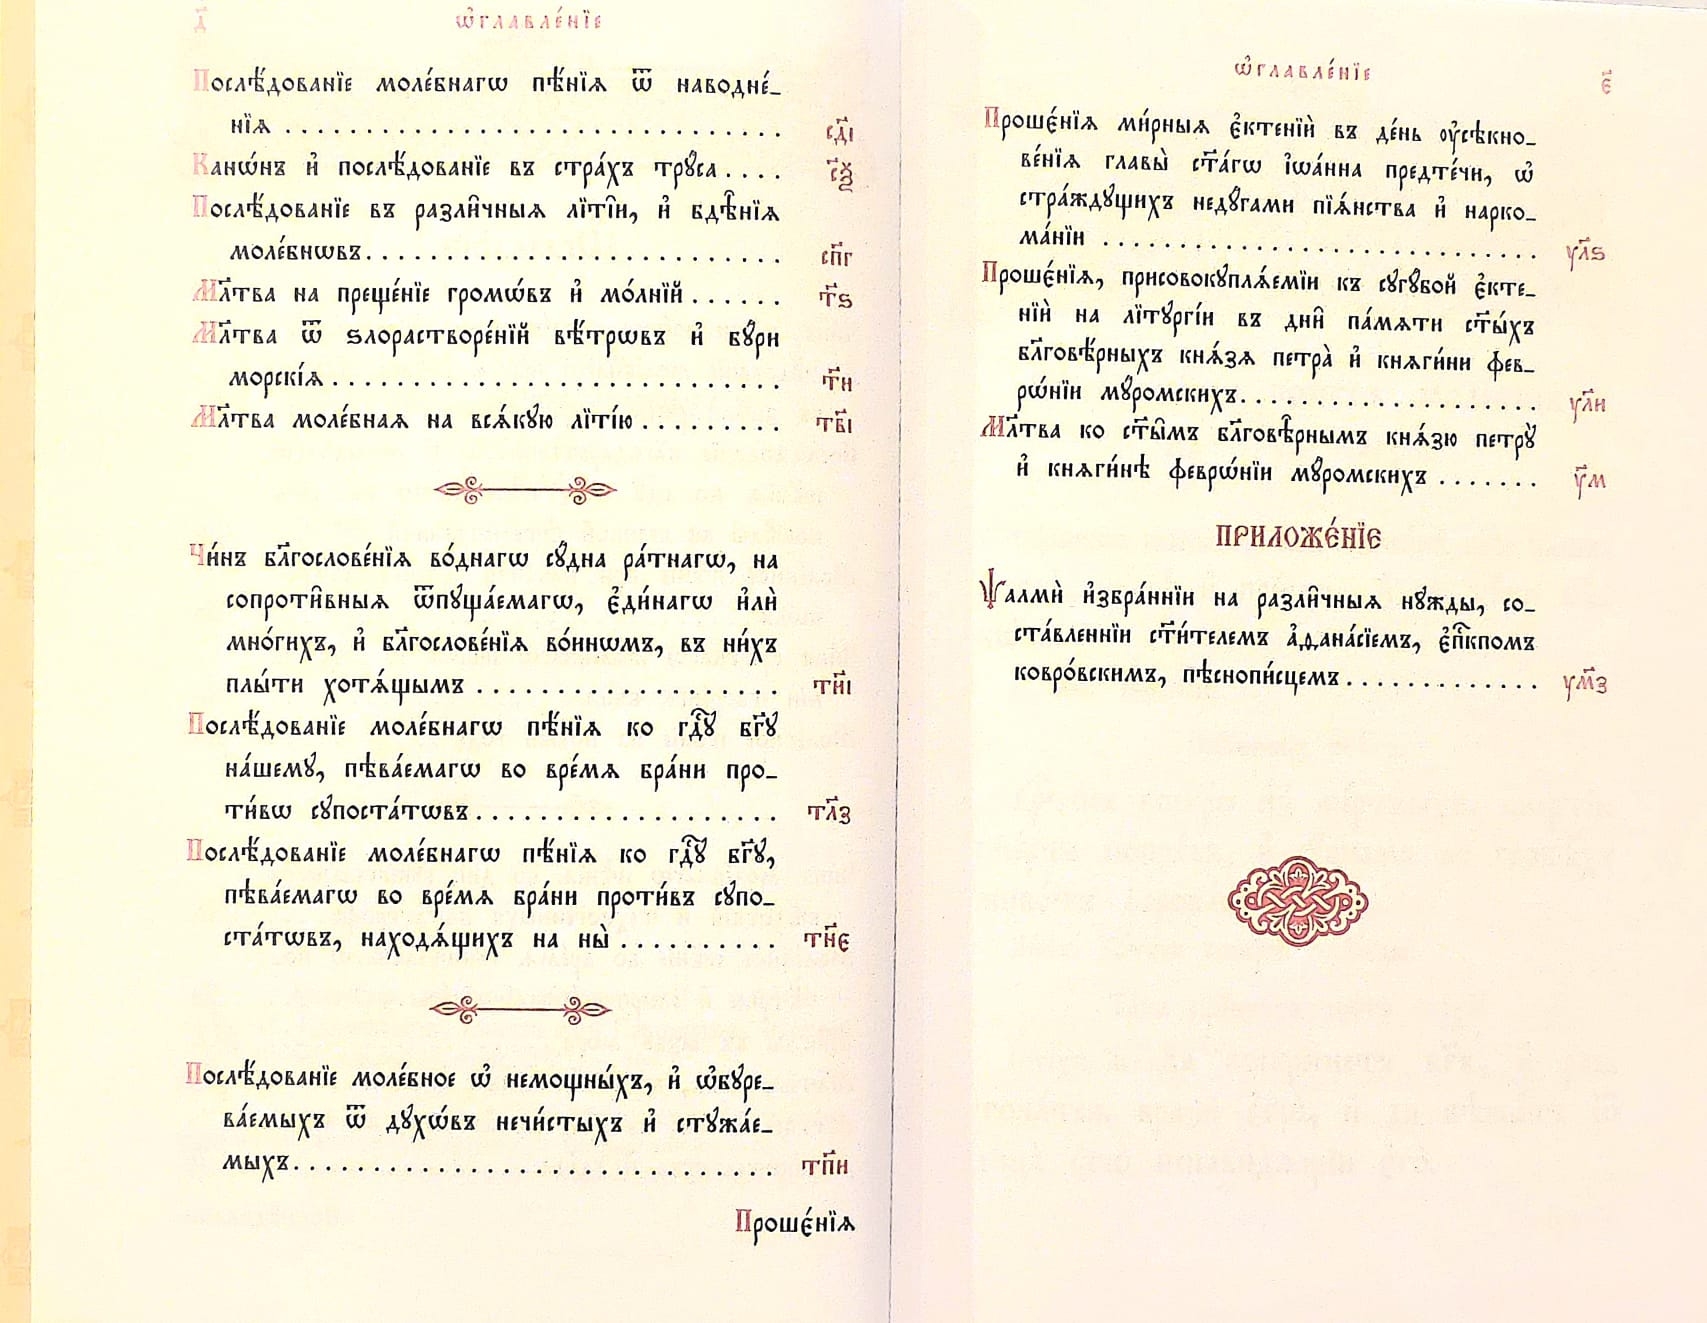 д҃
Ѡ҆главле́нїе
Послѣ́дованїе моле́бнагѡ пѣ́нїѧ ѿ наводне́_
нїѧ ............................... сд҃і
Канѡ́нъ и҆ послѣ́дованїе въ стра́хъ трꙋ́са .... сѯ҃
Послѣ́дованїе въ разли̑чныѧ лїті̑и, и҆ бдѣ̑нїѧ
моле́бнѡвъ ............................ сп҃г
Мл҃тва на преще́нїе громѡ́въ и҆ мо́лнїй ...... т҃ѕ
Мл҃тва ѿ ѕлорастворе́нїй вѣ́трѡвъ и҆ бꙋ́ри
морскі́ѧ ............................. т҃и
Мл҃тва моле́бнаѧ на всѧ́кꙋю лїті́ю ......... тв҃і
Чи́нъ бл҃гослове́нїѧ во́днагѡ сꙋ́дна ра́тнагѡ, на
сопроти̑вныѧ ѿпꙋща́емагѡ, є҆ди́нагѡ и҆лѝ
мно́гихъ, и҆ бл҃гослове́нїѧ во́инѡмъ, въ ни́хъ
плы́ти хотѧ́щымъ ................... ти҃і
Послѣ́дованїе моле́бнагѡ пѣ́нїѧ ко гдⷭ҇ꙋ бг҃ꙋ
на́шемꙋ, пѣва́емагѡ во вре́мѧ бра́ни про_
ти́вѡ сꙋпоста́тѡвъ ................... тл҃з
Послѣ́дованїе моле́бнагѡ пѣ́нїѧ ко гдⷭ҇ꙋ бг҃ꙋ,
пѣва́емагѡ во вре́мѧ бра́ни проти́въ сꙋпо_
ста́тѡвъ, находѧ́щихъ на ны̀ .......... тн҃є
Послѣ́дованїе моле́бное ѡ҆ немощны́хъ, и҆ ѡ҆бꙋре_
ва́емыхъ ѿ дꙋхѡ́въ нечи́стыхъ и҆ стꙋжа́е_
мыхъ .............................. тп҃и
Проше́нїѧ
Ѡ҆главле́нїе
є҃
Проше́нїѧ ми́рныѧ є҆ктенїѝ въ де́нь ᲂу҆сѣкно_
ве́нїѧ главы̀ ст҃а́гѡ і҆ѡа́нна предте́чи, ѡ҆
стра́ждꙋщихъ недꙋ́гами пїѧ́нства и҆ нарко_
ма́нїи ............................. ул҃ѕ
Проше́нїѧ, присовокꙋплѧ́емїи къ сꙋгꙋ́бой є҆кте_
нїѝ на лїтꙋргі́и въ дни̑ па́мѧти ст҃ы́хъ
бл҃говѣ́рныхъ кнѧ́зѧ петра̀ и҆ кнѧги́ни фев_
рѡ́нїи мꙋ́ромскихъ .................... ул҃и
Мл҃тва ко ст҃ы̑мъ бл҃говѣ̑рнымъ кнѧ́зю петрꙋ̀
и҆ кнѧги́нѣ феврѡ́нїи мꙋ́ромскихъ ....... у҃м
ПРИЛОЖЕ́НЇЕ
Ѱалмѝ и҆збра́ннїи на разли̑чныѧ нꙋ́жды, со_
ста́вленнїи ст҃и́телемъ а҆ѳана́сїемъ, є҆пⷭ҇кпомъ
ковро́вскимъ, пѣснопи́сцемъ ............. ум҃з